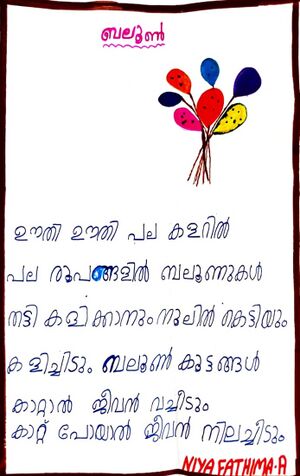 ബലൂൺ
ഊതി ഊതി പല കളറിൽ
പല രൂപങ്ങളിൽ ബലൂണുകൾ
തട്ടി കളിക്കാനും നൂലിൽ കെട്ടിയും
കളിച്ചിടും ബലൂൺ കൂട്ടങ്ങൾ
കാറ്റാൽ ജീവൻ വച്ചിടും
കാറ്റ് പോയാൽ ജീവൻ നിലച്ചിടും
NIYA FATHIMA-A